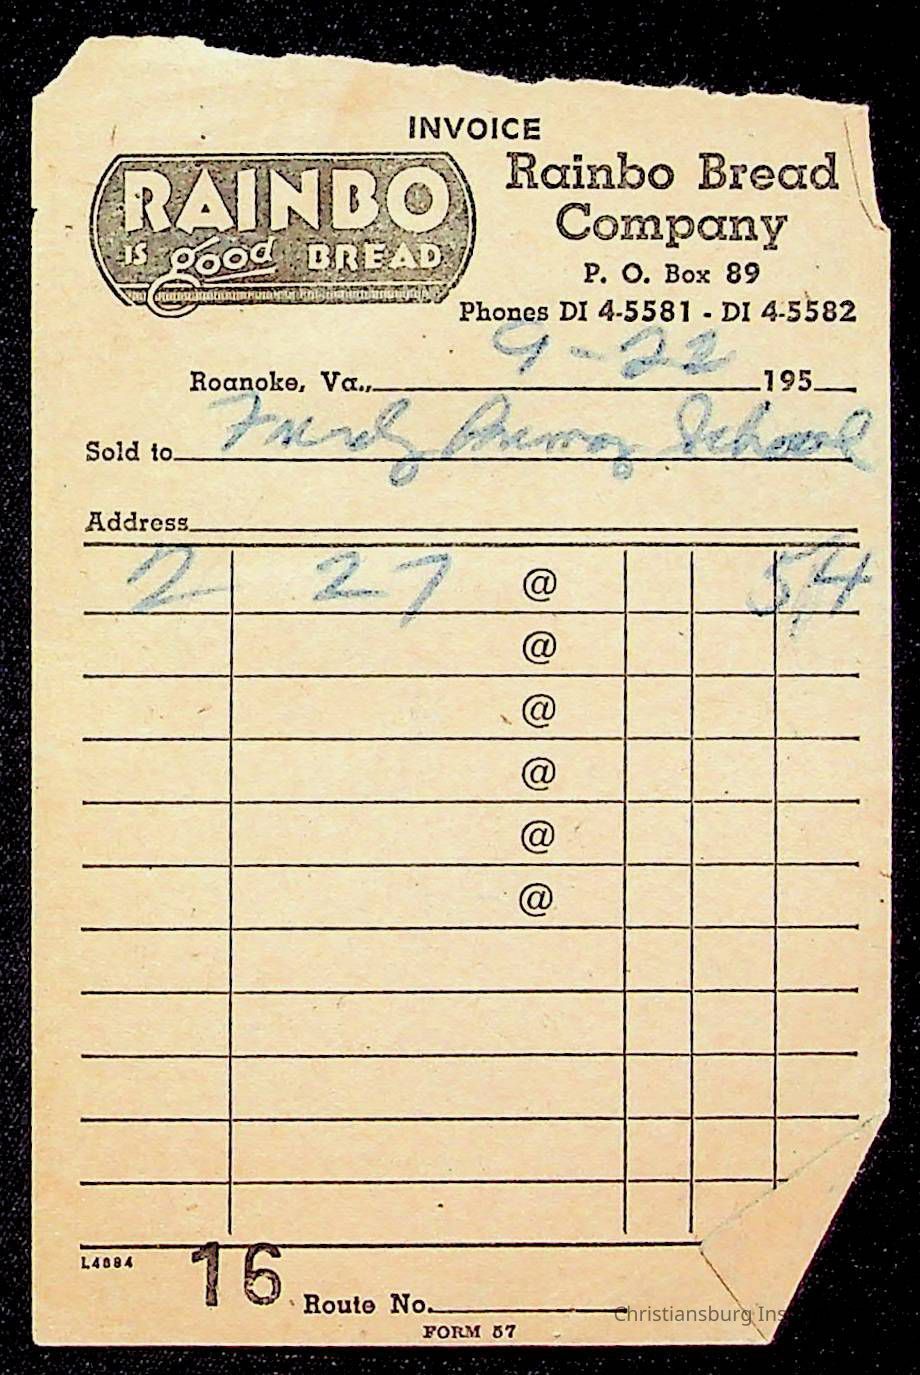 INVOICE
RAINBO
IS good BREAD
Rainbo Bread
Company
P. O. Box 89
Phones DI 4-5581 - DI 4-5582
9-22
Roanoke, Va., 195
Sold to School
Address
2 27 @ 54
@
@
@
@
@
L4684
16 Route No.
FORM 57
Christiansburg Ins